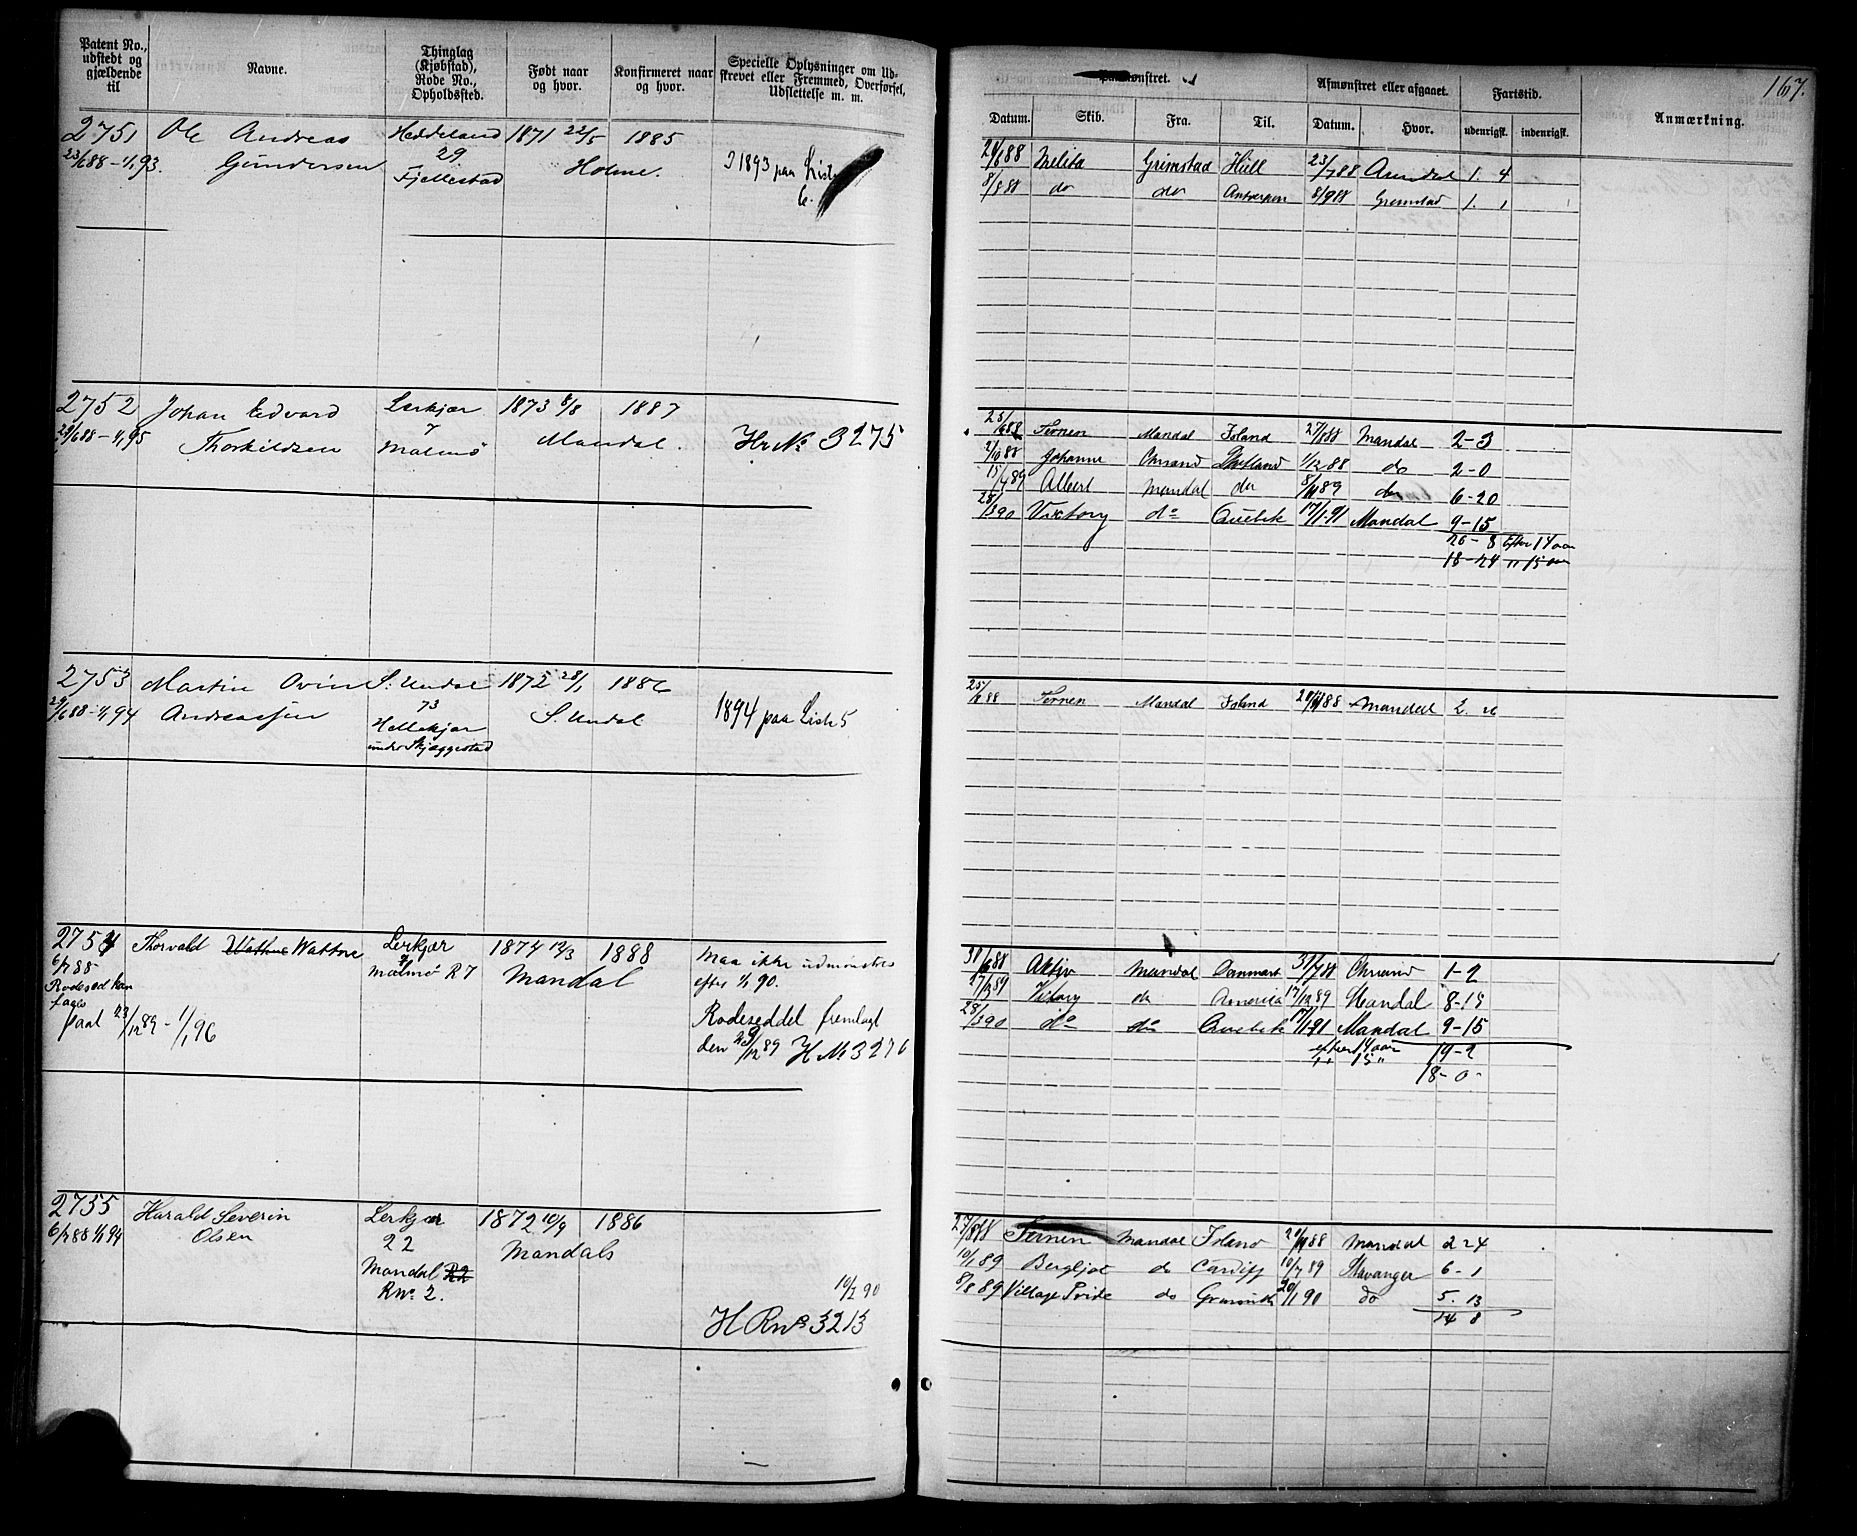 167.
Patent No., udstedt og gjældende til
Navne.
Thinglag (Kjøbstad), Rode No., Opholdssted.
Født naar og hvor.
Konfirmeret naar og hvor.
Specielle Oplysninger om Udskrevet eller Fremmed, Overførsel, Udslettelse m. m.
Paamønstret.
Afmønstret eller afgaaet.
Fartstid.
Anmærkning.
Datum. Skib. Fra. Til. Datum. Hvor. udenrigsk. indenrigsk.
2751 Ole Andreas Heddeland 1871 22/5 1885
23/6 88 - 1/1 93. Gundersen 29 Holme. I 1893 paa Liste
Fjellestad 6.
Melita Grimstad Hull 23/7 88 Arendal 1. 4
8/8 88 do do Antverpen 8/9 88 Grimstad 1. 1
2752 Johan Edvard Lerkjær 1873 8/8 1887
29/6 88 - 1/1 95 Thorkildsen 7 Mandal. Hr No 3275
Malmø
25/6 88 Ternen Mandal Island Mandal 2-3
2/10 88 Johanne Chrsand Shetland 1/12 88 do 2-0
Albert Mandal do do 6-20
28/3 90 Victory do Quebek 17/1 91 Mandal 9-15
26-8 Efter 14 aar
18-24 " 15 aar
2753 Martin Ovin S. Undal 1872 28/1 1886
29/6 88 - 1/1 94 Andreassen 73 S. Undal 1894 paa Liste 5
Hellekjær
under Skjæggestad
Ternen Mandal Island Mandal
2754 Thorvald Wathne Wattne Lerkjær 1874 12/3 1888 Maa ikke udmønstres
6/7 88 Malmø R 7 Mandal efter 1/1 90.
Rodesed kan
tages
paal 23/12 89 - 1/1 96 Rodeseddel fremlagt
den 23/12 89 H No 3276
30/6 88 Aktiv Mandal Danmark 31/7 88 Chrsand 1-2
Victory do America 17/12 89 Mandal 8-15
28/3 90 do do Quebek 17/1 91 Mandal 9-15
efter 14 aar 19-2
" 15 " 18-0-
2755 Harald Severin Lerkjær 1872 10/9 1886
6/7 88 1/1 94 Olsen 22 Mandals
Mandal R2
RNo. 2.
10/2 90
H RNo 3213
27/8 88 Ternen Mandal Island Mandal 2 24
10/1 89 Bergljot do Cardiff 10/7 89 Stavanger 6-1
8/8 89 Village Pride do 20/1 90 do 5. 13
14 8